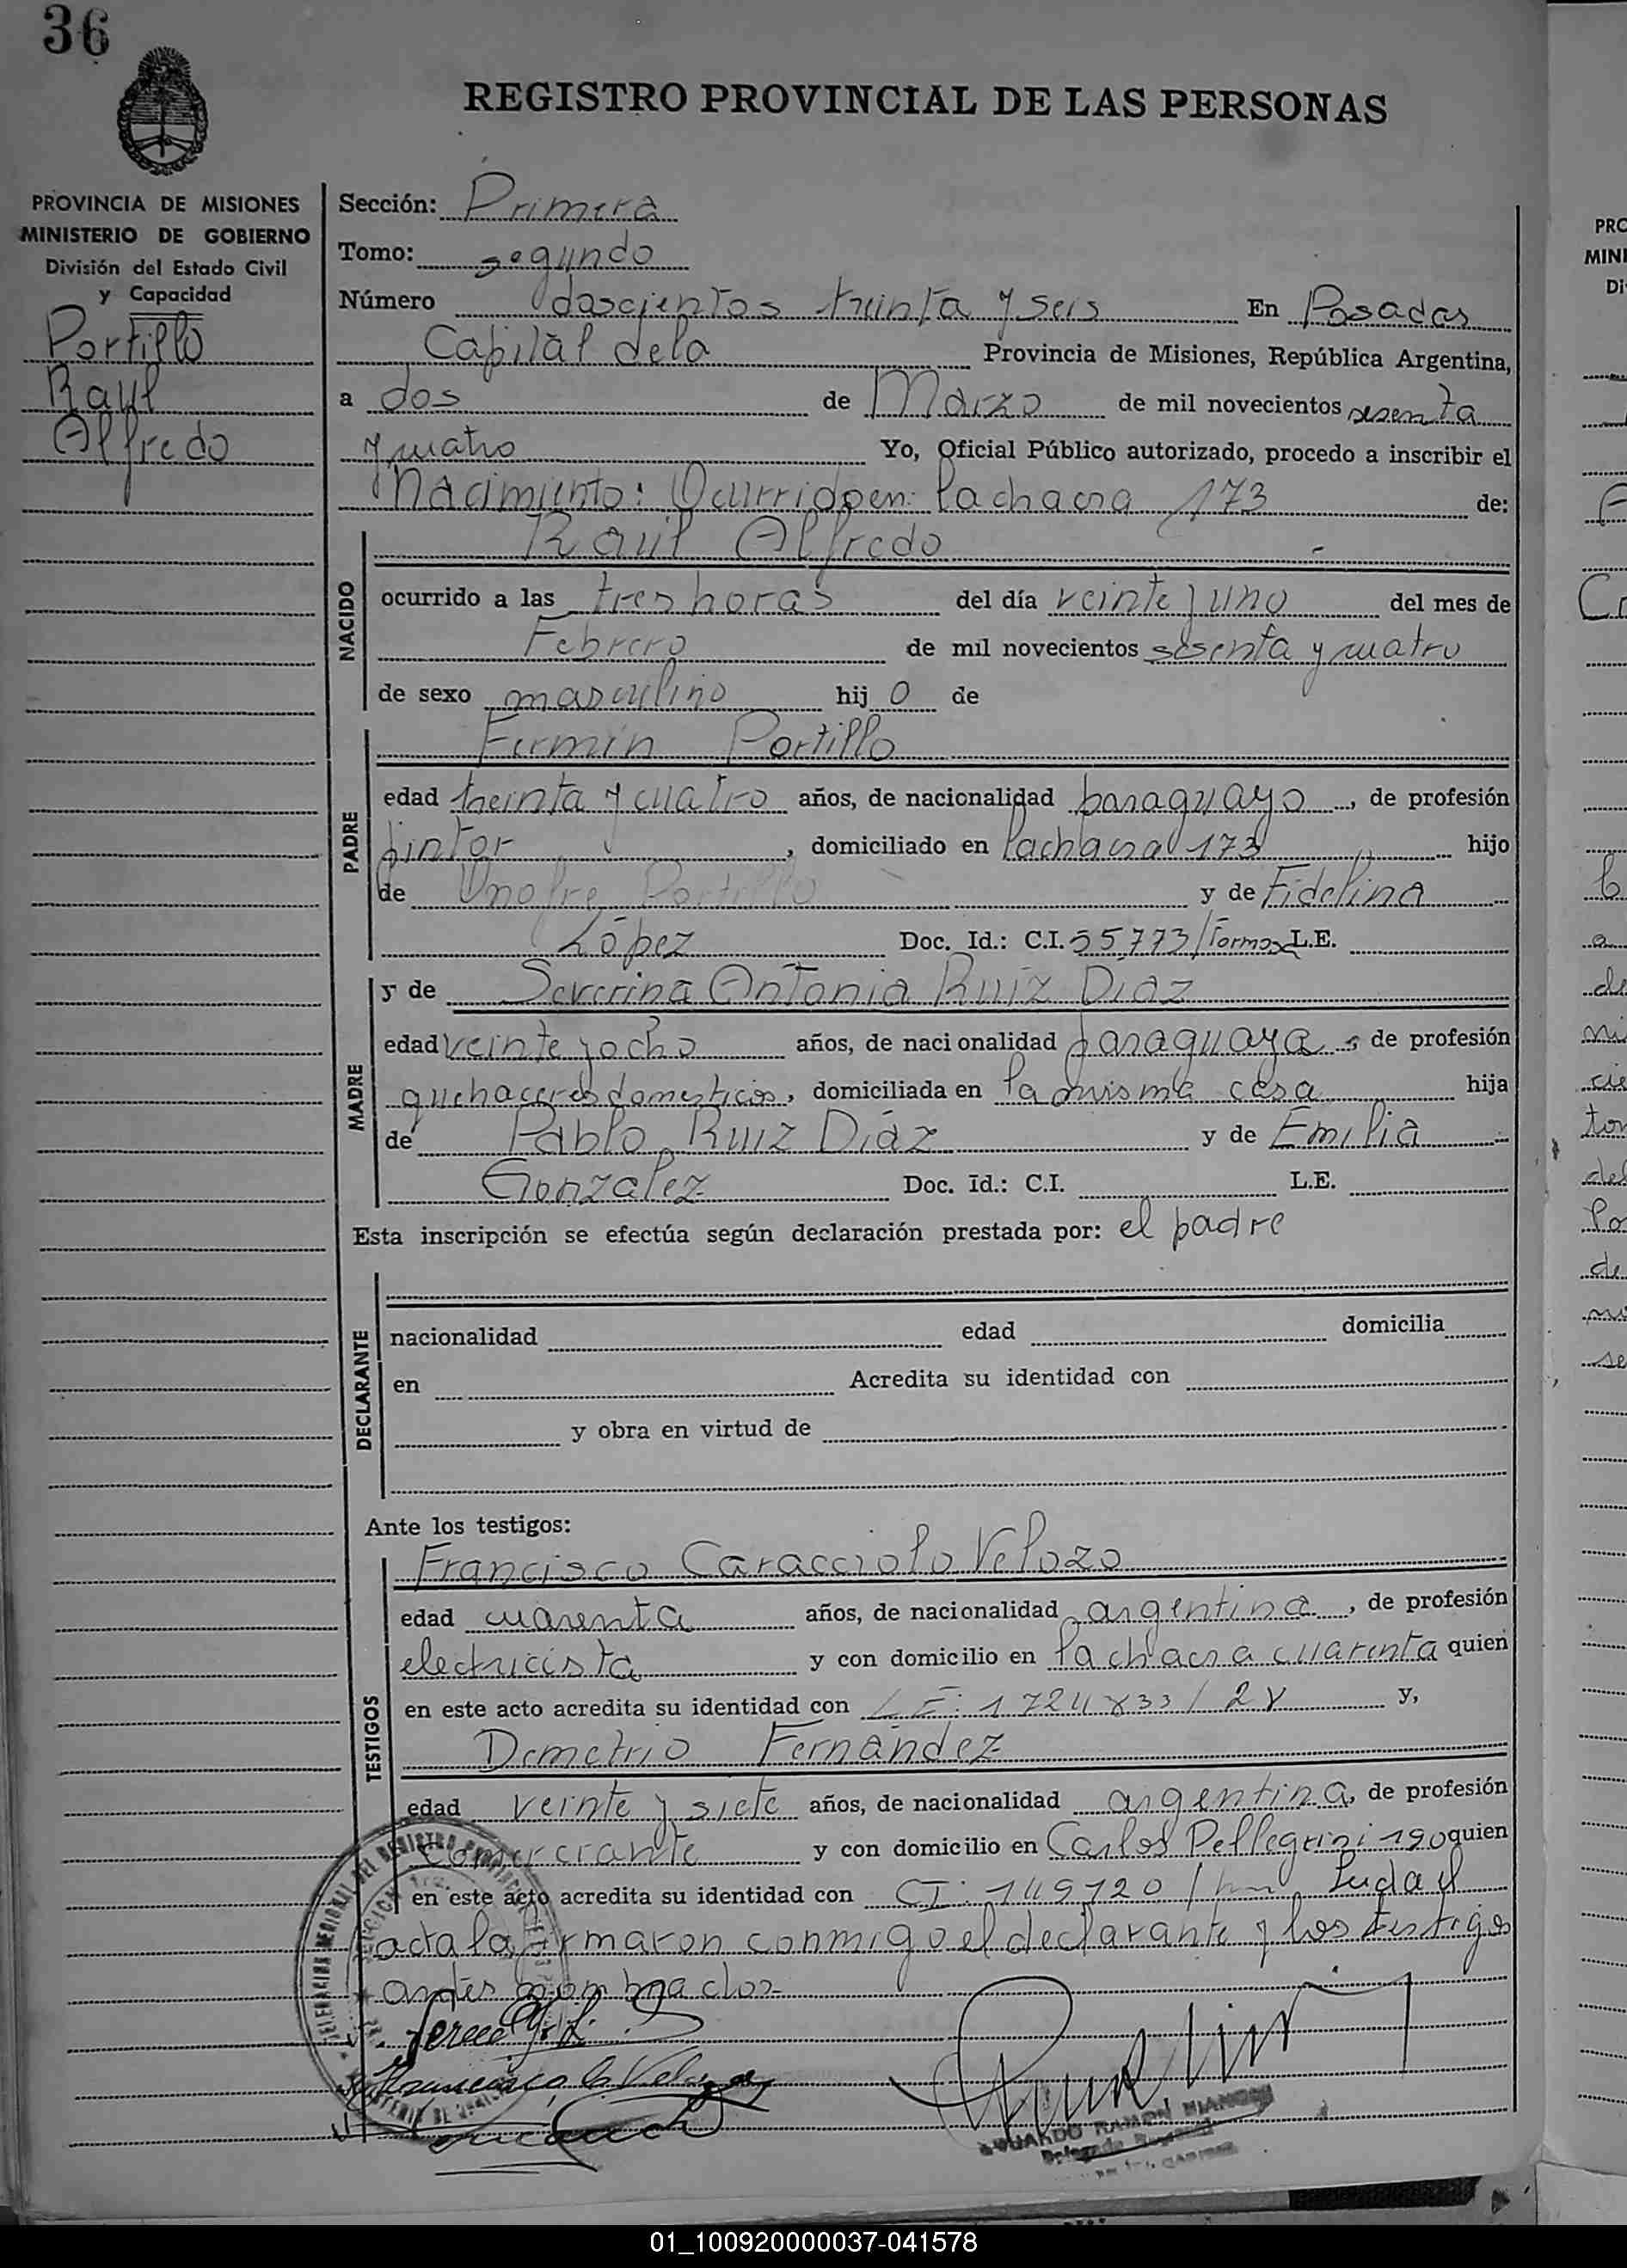 36
REGISTRO PROVINCIAL DE LAS PERSONAS
PROVINCIA DE MISIONES
MINISTERIO DE GOBIERNO
División del Estado Civil
y Capacidad
Portillo
Raul
Alfredo
Sección: Primera
Tomo: segundo
Número doscientos treinta y seis En Posadas
Capital de la Provincia de Misiones, República Argentina,
a dos de Marzo de mil novecientos sesenta
y cuatro Yo, Oficial Público autorizado, procedo a inscribir el
Nacimiento: Ocurrido en: la chacra 173 de:
Raul Alfredo
NACIDO
ocurrido a las tres horas del día veinte y uno del mes de
Febrero de mil novecientos sesenta y cuatro
de sexo masculino hij o de
Fermin Portillo
PADRE
edad treinta y cuatro años, de nacionalidad paraguayo, de profesión
pintor, domiciliado en la chacra 173 hijo
de Onofre Portillo y de Fidelina
López Doc. Id.: C.I. 55773/Formosa L.E.
y de Severina Antonia Ruiz Diaz
MADRE
edad veinte y ocho años, de nacionalidad paraguaya, de profesión
quehaceres domesticos, domiciliada en la misma casa hija
de Pablo Ruiz Diaz y de Emilia
Gonzalez Doc. Id.: C.I. L.E.
Esta inscripción se efectúa según declaración prestada por: el padre
DECLARANTE
nacionalidad edad domicilia
en Acredita su identidad con
y obra en virtud de
Ante los testigos:
Francisco Caracciolo Velozo
TESTIGOS
edad cuarenta años, de nacionalidad argentina, de profesión
electricista y con domicilio en la chacra cuarenta quien
en este acto acredita su identidad con L E: y,
Demetrio Fernández
edad veinte y siete años, de nacionalidad argentina, de profesión
comerciante y con domicilio en Carlos Pellegrini 190 quien
en este acto acredita su identidad con CI: 149120 / Leida el
acta la firmaron conmigo el declarante y los testigos
antes nombrados
01_100920000037-041578